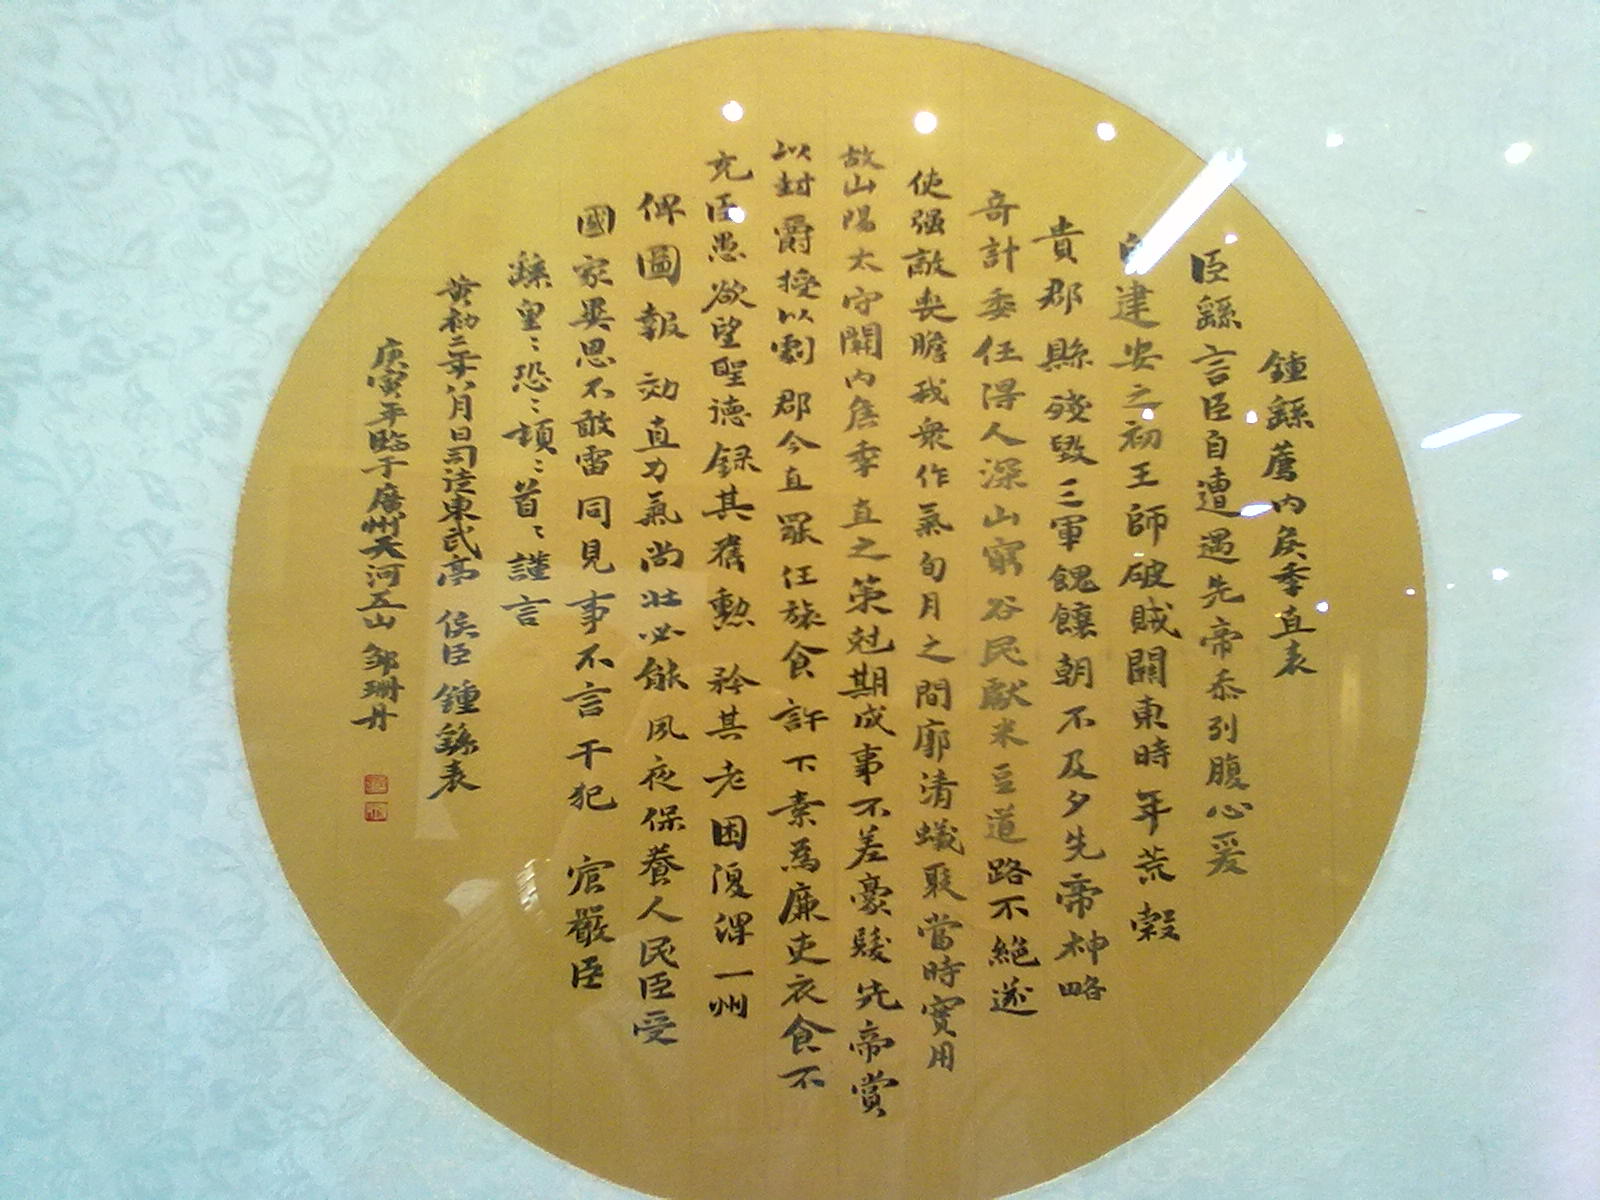 鍾繇薦内矦季直表
臣繇言臣自遭遇先帝忝列腹心爰
建安之初王師破賊關東時年荒穀
貴郡縣殘毀三軍餽饟朝不及夕先帝神略
奇計委任得人深山窮谷民獻米豆道路不絶遂
使强敵喪膽我衆作氣旬月之間廓清蟻聚當時實用
故山陽太守關内矦季直之策尅期成事不差豪髮先帝賞
以封爵授以劇郡今直罷任旅食許下素為廉吏衣食不
充臣愚欲望聖德録其舊勳矜其老困復俾一州
俾圖報效直力氣尚壯必能夙夜保養人民臣受
國家異恩不敢雷同見事不言干犯宸嚴臣
繇皇〻恐〻頓〻首〻謹言
黄初二年八月日司徒東武亭侯臣鍾繇表
庚寅年臨于廣州天河五山 鄒珊丹